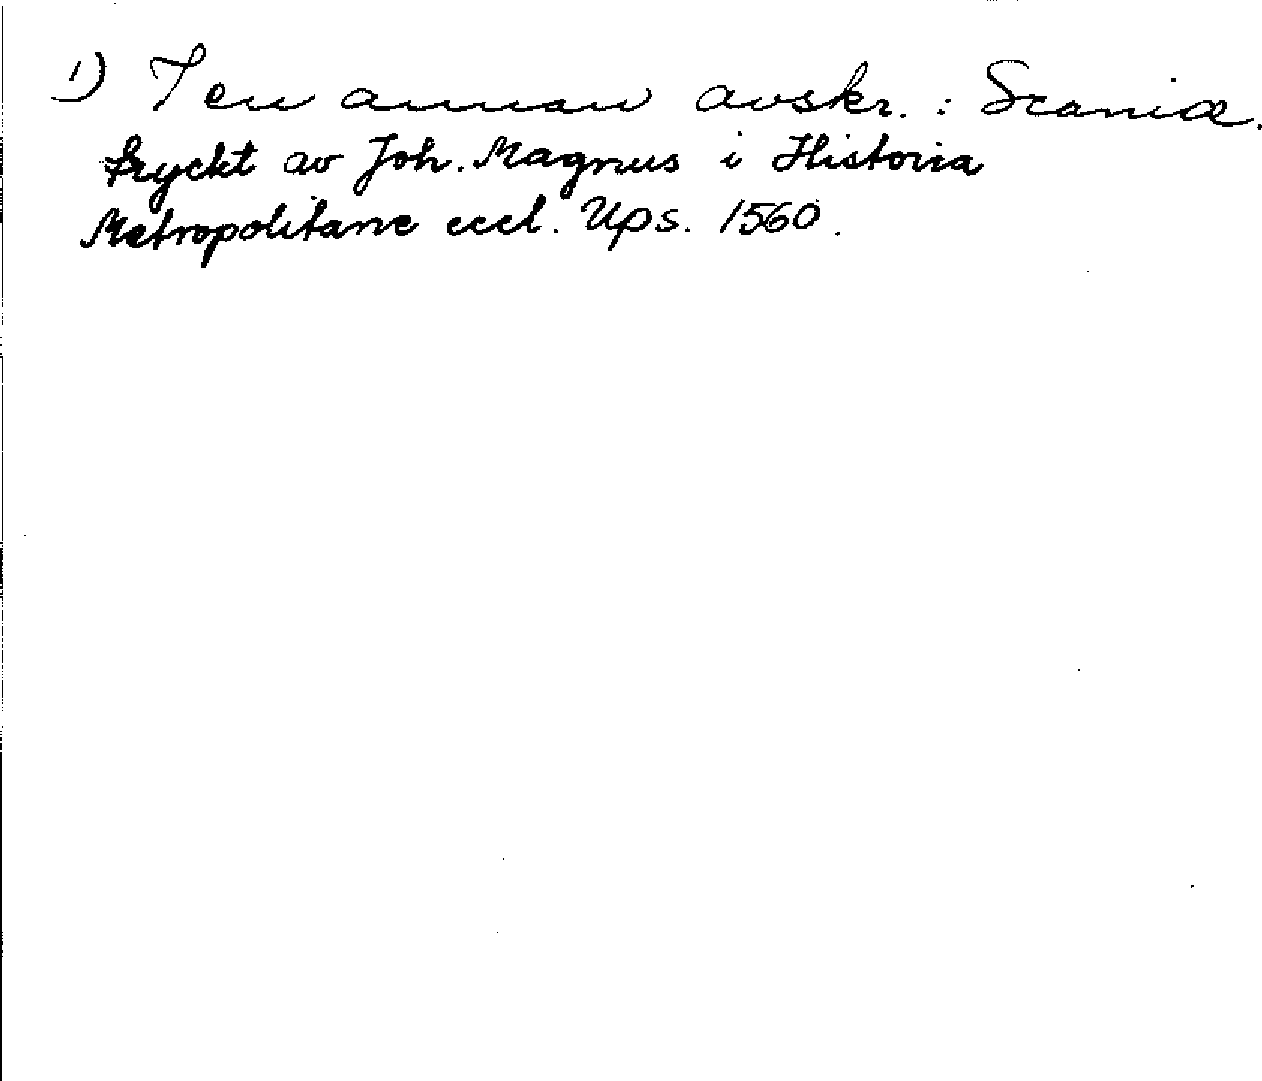 1) I en annan avskr. : Scaniæ.
tryckt av Joh. Magnus i Historia
Metropolitane eccl. Ups. 1560.